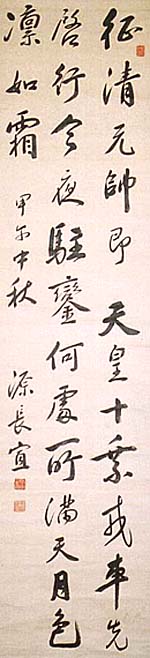 征清元帥即 天皇十乘戎車先
啓行今夜駐鑾何處所滿天月色
凛如霜
甲午中秋 源長宜